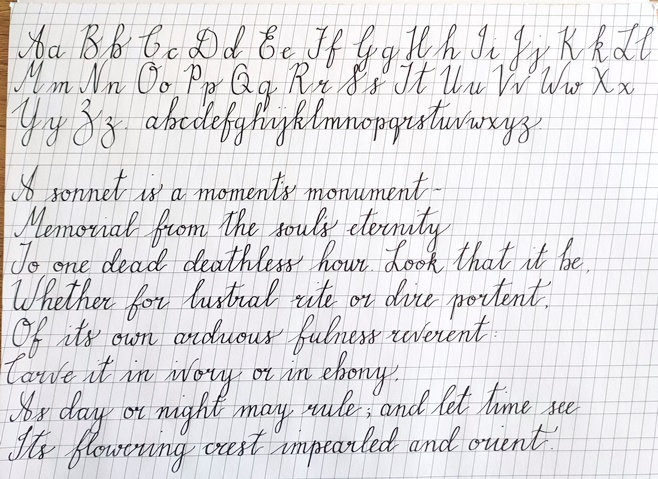 Aa Bb Cc Dd Ee Ff Gg Hh Ii Jj Kk Ll
Mm Nn Oo Pp Qq Rr Ss Tt Uu Vv Ww Xx
Yy Zz. abcdefghijklmnopqrstuvwxyz.
A sonnet is a moment's monument-
Memorial from the soul's eternity
To one dead deathless hour. Look that it be,
Whether for lustral rite or dire portent,
Of its own arduous fulness reverent:
Carve it in ivory or in ebony,
As day or night may rule; and let time see
Its flowering crest impearled and orient.